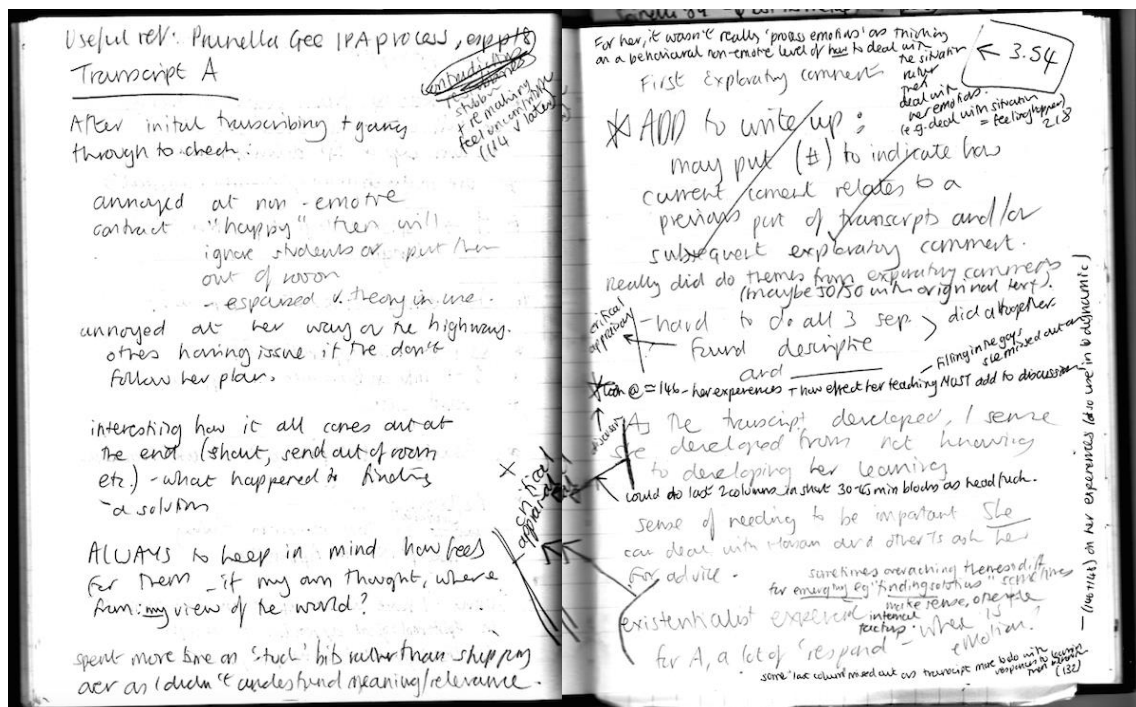 Useful ref: Prunella Gee IPA process, esp p18
Transcript A
contradictions
stubborn
+ remaining
feel uncomfortable
(114 v later)
After initial transcribing + going
through to check:
annoyed at non-emotive
contract "happy" then will
ignore students or put them
out of room
- espoused v. theory in use.
annoyed at her way or the highway.
others having issue if the don't
follow her plan.
interesting how it all comes out at
the end (shout, send out of room
etc.) - what happened to finding
a solution
X
critical
appraisal
ALWAYS to keep in mind how feels
for them - if my own thought, where
from: my view of the world?
spent more time on 'stuck' bits rather than skipping
over as I didn't understand meaning/relevance.
For her, it wasn't really 'process emotions' as thinking
on a behavioural non-emotive level of how to deal with
the situation
rather
than
deal with
her emotions.
(e.g. deal with situation
= feeling happier)
218
← 3.54
First exploratory comment
ADD to write up:
may put (#) to indicate how
current coment relates to a
previous part of transcripts and/or
subsequent exploratory comment.
Really did do themes from exploratory comments
(maybe 50/50 with original text).
critical
appraisal
- hard to do all 3 sep. > did altogether.
found descriptive
and
- filling in the gaps
she missed out on
@ = 146 - her experiences + how effect her teaching MUST add to discussion.
discussion
As the transcript developed, I sense
she developed from not knowing
to developing her learning
could do last 2 columns in short 30-45 min blocks as headfuck.
sense of needing to be important She
can deal with and other Ts ask her
for advice.
sometimes overaching themes diff
for emerging eg "finding solutions" sometimes
make sense, one
existentialist
internal
- when is
for A, a lot of 'respond'
emotion?
some 'last column' missed out as transcript more to do with
responses to
than
(132)
- (146+148) on her experiences (also use in bodynamic)